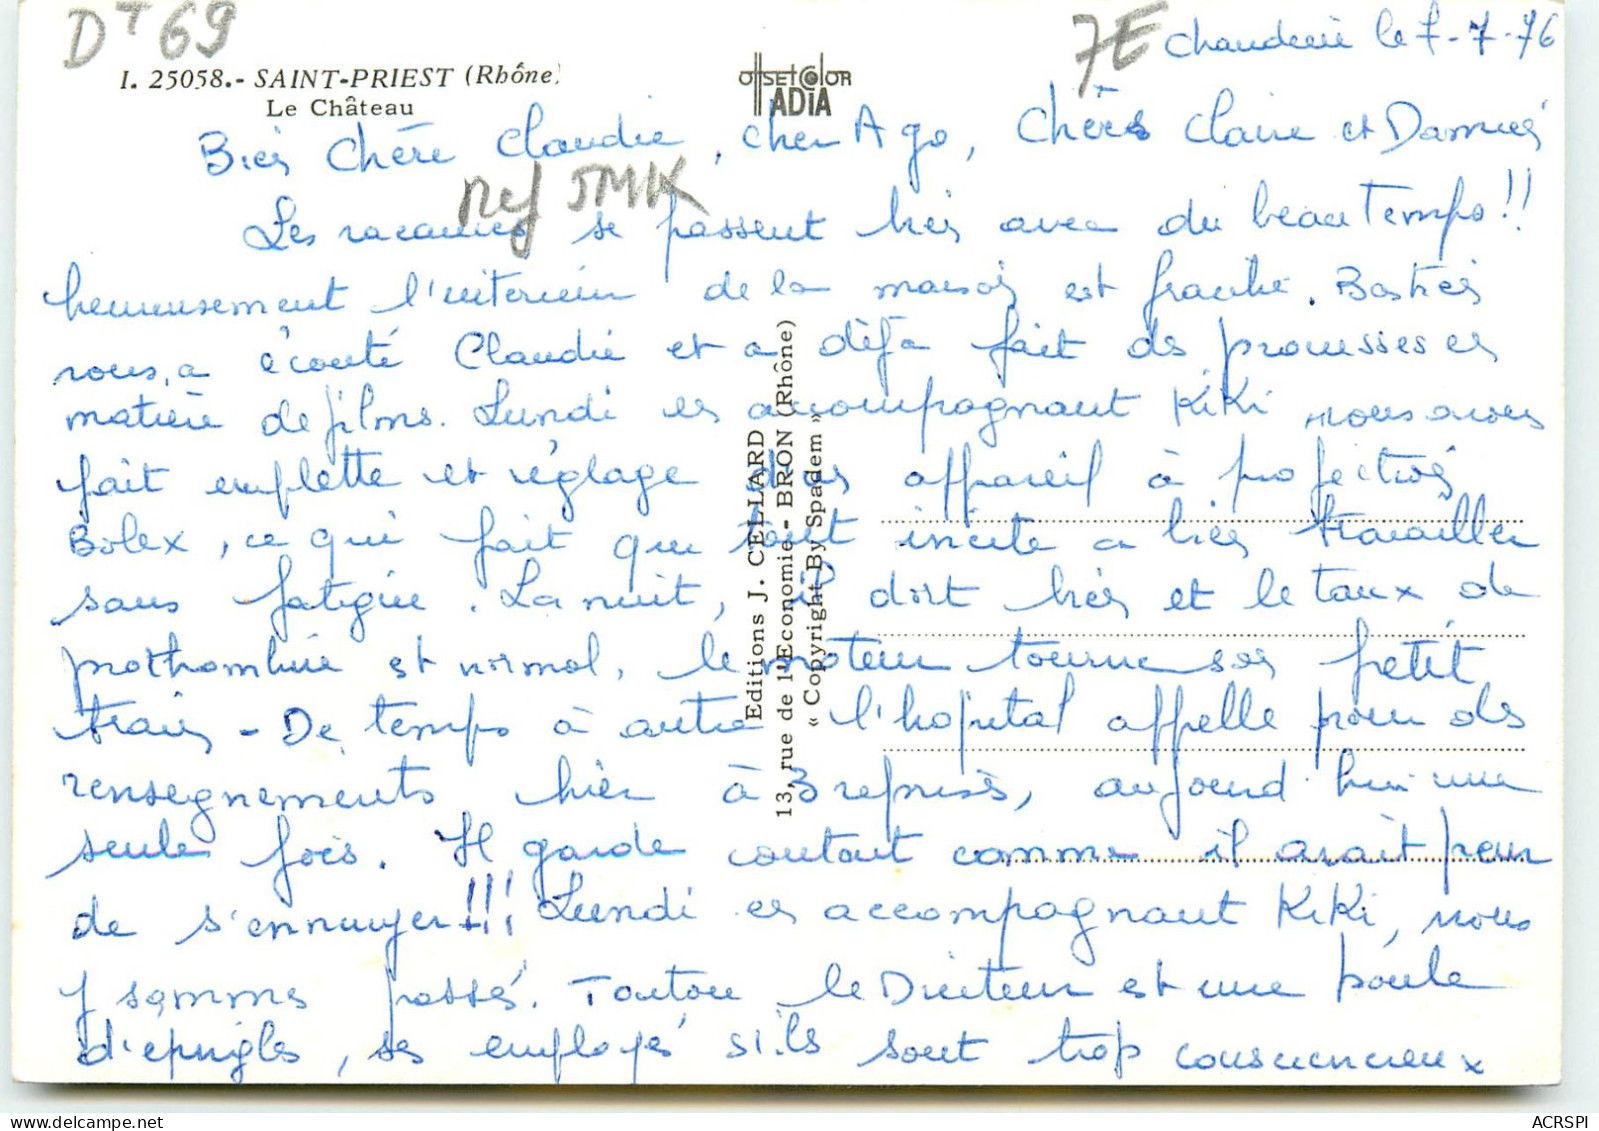 Dt 69
7E
Chaudenie le 7-7-76
I. 25058.- SAINT-PRIEST (Rhône)
Le Château
OffSEt COlOR
IADIA
Bien Chère Claudie, cher Ago, Chères Claire et Damien
Ref JMK
Les vacances se passent très avec du beau Temps !!
heureusement l'intérieur de la maison est fraiche. Bastien
nous a écouté Claudie et a déjà fait des prouesses en
matière de films. Lundi en accompagnant KiKi nous avons
fait emplette et réglage d'un appareil à projection
Bolex, ce qui fait que tout incite a bien travailler
sans fatigue. La nuit, il dort très et le taux de
prothrombine est normal, le moteur tourne son petit
train - De temps à autre l'hopital appelle pour des
rensegnements hier à 3 reprises, aujourd hui une
seule fois. Il garde contact comme il avait peur
de s'ennuyer !!! Lundi en accompagnant KiKi, nous
y sommes passés. Toutou le Directeur est une poule
d'epingles, ses employés s'ils sont trop consciencieux
Editions J. CELLARD
13, rue de l'Economie - BRON (Rhône)
« Copyright By Spadem »
ACRSPI